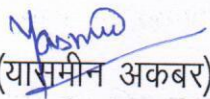 Yasmin
(यासमीन अकबर)